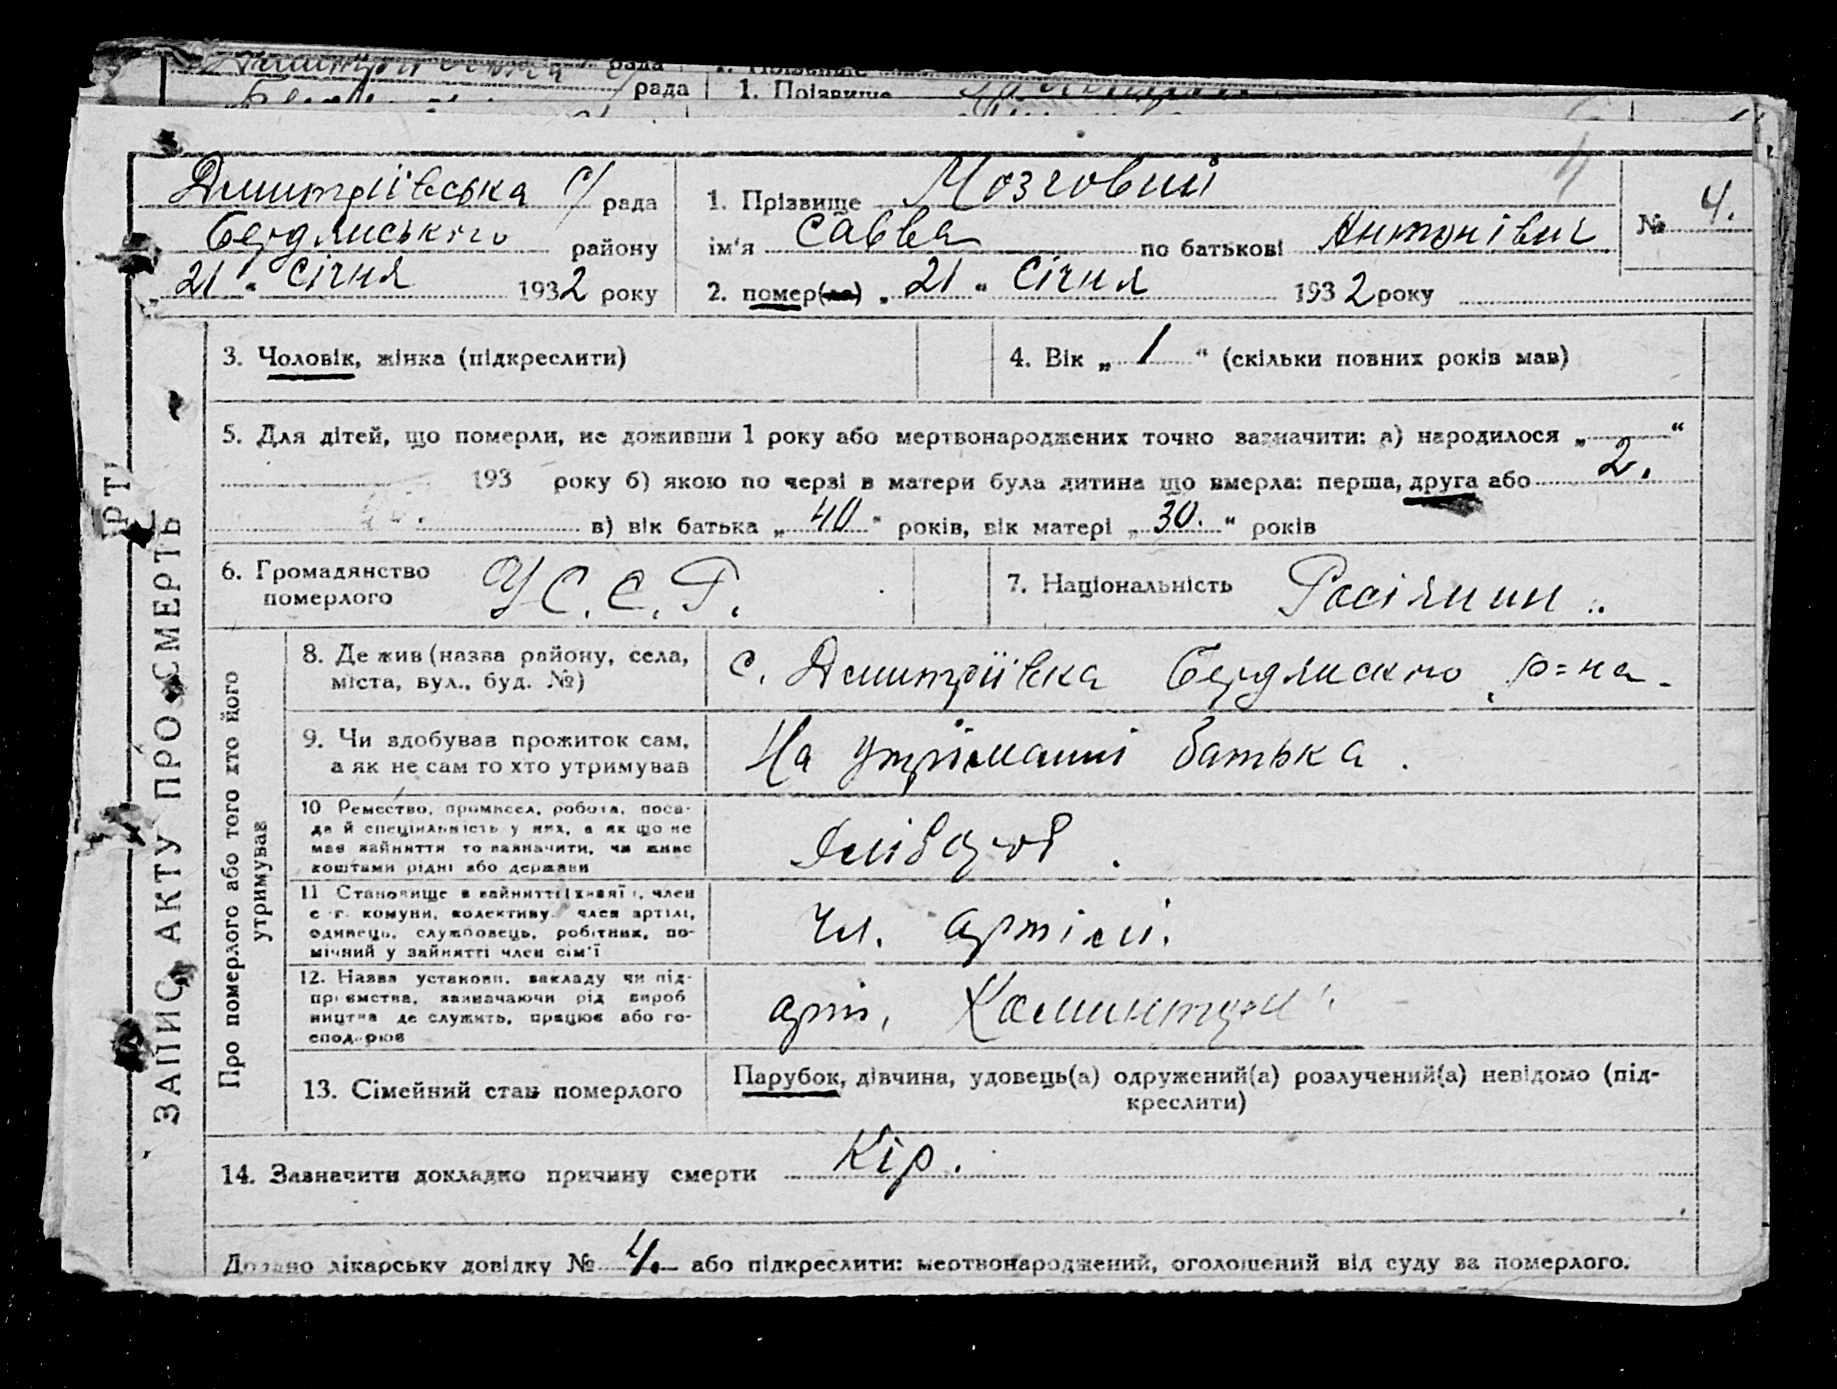 рада
рада 1. Прізвище
Дмитріївська с/рада 1. Прізвище Мозговий № 4.
Бердянського району ім'я Савва по батькові Антонівич
„21" Січня 1932 року 2. помер(ла) „21" Січня 1932 року
3. Чоловік, жінка (підкреслити) 4. Вік „1" (скільки повних років мав)
5. Для дітей, що померли, не доживши 1 року або мертвонароджених точно зазначити: а) народилося „ "
193 року б) якою по черзі в матери була дитина що вмерла: перша, друга або 2.
в) вік батька „40" років, вік матері „30." років
6. Громадянство померлого У С. С. Р. 7. Національність Росіянин
8. Де жив (назва району, села, міста, вул., буд. №) с. Дмитріївка Бердянского р=на.
9. Чи здобував прожиток сам, а як не сам то хто утримував На утріманні батька.
10 Ремество, промисел, робота, посада й спеціяльність у них, а як що не мав зайняття то зазначити, чи живе коштами рідні або держави
11 Становище в зайнятті (хазяї, член с.-г. комуни, колективу, член артілі, одинець, службовець, робітник, помічний у зайнятті член сім'ї чл. артілі.
12. Назва установи, закладу чи підприємства, зазначаючи рід виробництва де служить, працює або господарює арт. Комінтерн
13. Сімейний стан померлого Парубок, дівчина, удовець(а) одружений(а) розлучений(а) невідомо (підкреслити)
14. Зазначити докладно причину смерти Кір.
Додано лікарську довідку № 4. або підкреслити: мертвонароджений, оголошений від суду за померлого.
РТ
ЗАПИС АКТУ ПРО СМЕРТЬ
Про померлого або того хто його утримував